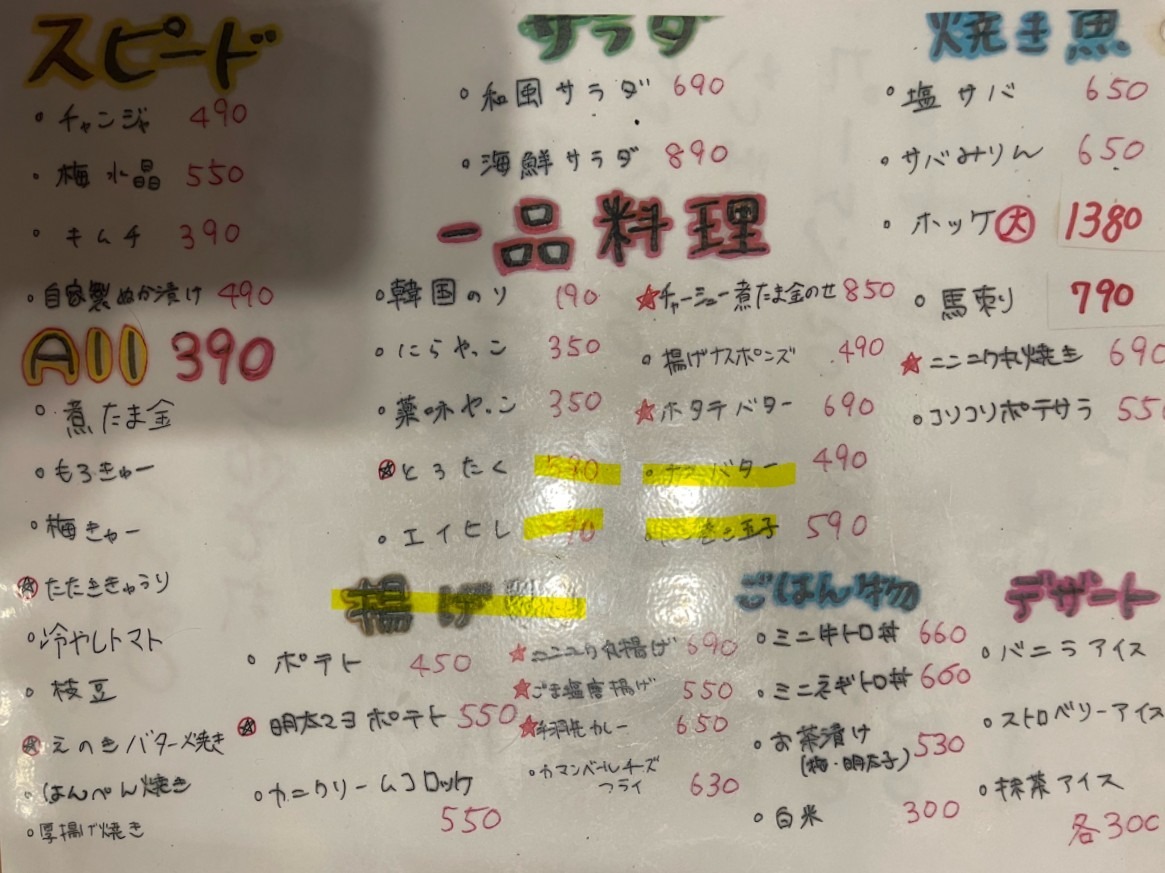 スピード
・チャンジャ 490
・梅水晶 550
・キムチ 390
・自家製ぬか漬け 490
All 390
・煮たま金
・もろきゅー
・梅きゅー
・たたききゅうり
・冷やしトマト
・枝豆
・えのきバター焼き
・はんぺん焼き
・厚揚げ焼き
サラダ
・和風サラダ 690
・海鮮サラダ 890
一品料理
・韓国のり 190
・にらやっこ 350
・薬味やっこ 350
・とろたく
・エイヒレ
★チャーシュー煮たま金のせ 850
・揚げナスポンズ 490
★ホタテバター 690
バター 490
玉子 590
焼き魚
・塩サバ 650
・サバみりん 650
・ホッケ 大 1380
・馬刺り 790
★ニンニク丸焼き 690
・コリコリポテサラ 55
揚げ
・ポテト 450
・明太マヨポテト 550
・カニクリームコロッケ
550
★ニンニク丸揚げ 690
★ごま塩唐揚げ 550
★カレー 650
・カマンベールチーズ
フライ 630
ごはん物
・ミニ牛トロ丼 660
・ミニネギトロ丼 660
・お茶漬け
(梅・明太子) 530
・白米 300
デザート
・バニラアイス
・ストロベリーアイス
・抹茶アイス
各300